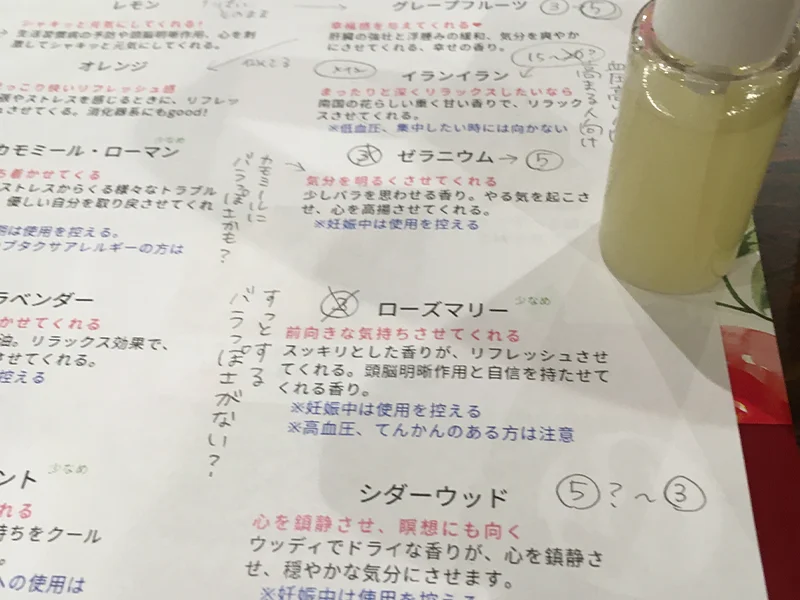 レモン
シャキッと元気にしてくれる!
生活習慣病の予防や頭脳明晰作用、心を刺
激してシャキッと元気にしてくれる。
グレープフルーツ ③→⑤
幸福感を与えてくれる❤
肝臓の強壮と浮腫みの緩和、気分を爽やか
にさせてくれる、幸せの香り。
オレンジ
っこり快いリフレッシュ感
張やストレスを感じるときに、リフレッ
させてくる。消化器系にもgood!
15~20?
イランイラン
まったりと深くリラックスしたいなら
南国の花らしい重く甘い香りで、リラック
スさせてくれる。
※低血圧、集中したい時には向かない
カモミール・ローマン
少なめ
ち着かせてくる
ストレスからくる様々なトラブル
優しい自分を取り戻させてくれ
は使用を控える。
ブタクサアレルギーの方は
カモミールに
バラっぽさかも?
③ ゼラニウム→⑤
気分を明るくさせてくれる
少しバラを思わせる香り。やる気を起こさ
せ、心を高揚させてくれる。
※妊娠中は使用を控える
ラベンダー
かせてくれる
油。リラックス効果で、
させてくれる。
控える
すっとする
バラっぽさがない?
③ ローズマリー
少なめ
前向きな気持ちさせてくれる
スッキリとした香りが、リフレッシュさせ
てくれる。頭脳明晰作用と自信を持たせて
くれる香り。
※妊娠中は使用を控える
※高血圧、てんかんのある方は注意
ント
少なめ
れる
持ちをクール
への使用は
シダーウッド ⑤?~③
心を鎮静させ、瞑想にも向く
ウッディでドライな香りが、心を鎮静さ
せ、穏やかな気分にさせます。
※妊娠中は使用を控える